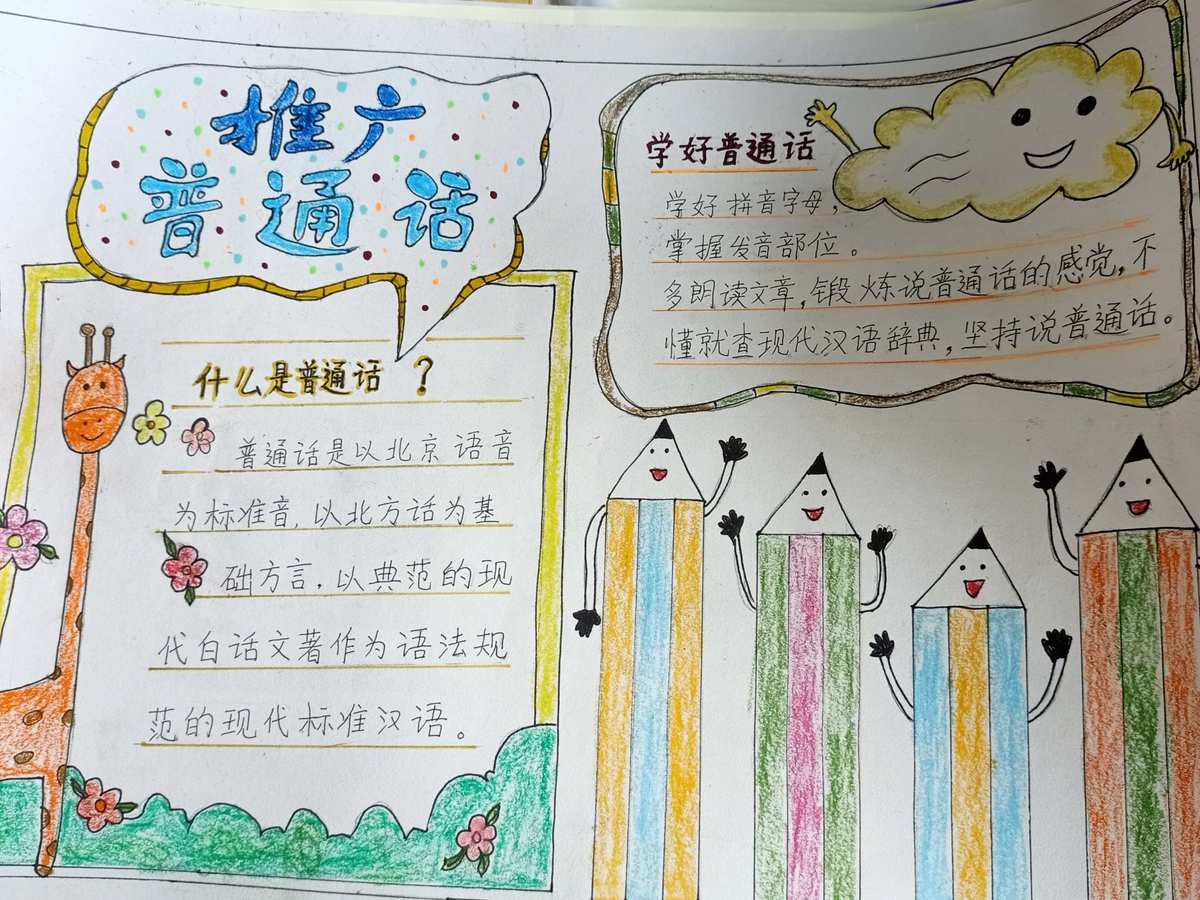 推广
普通话
什么是普通话 ?
普通话是以北京语音
为标准音,以北方话为基
础方言,以典范的现
代白话文著作为语法规
范的现代标准汉语。
学好普通话
学好拼音字母,
掌握发音部位。
多朗读文章,锻炼说普通话的感觉,不
懂就查现代汉语辞典,坚持说普通话。